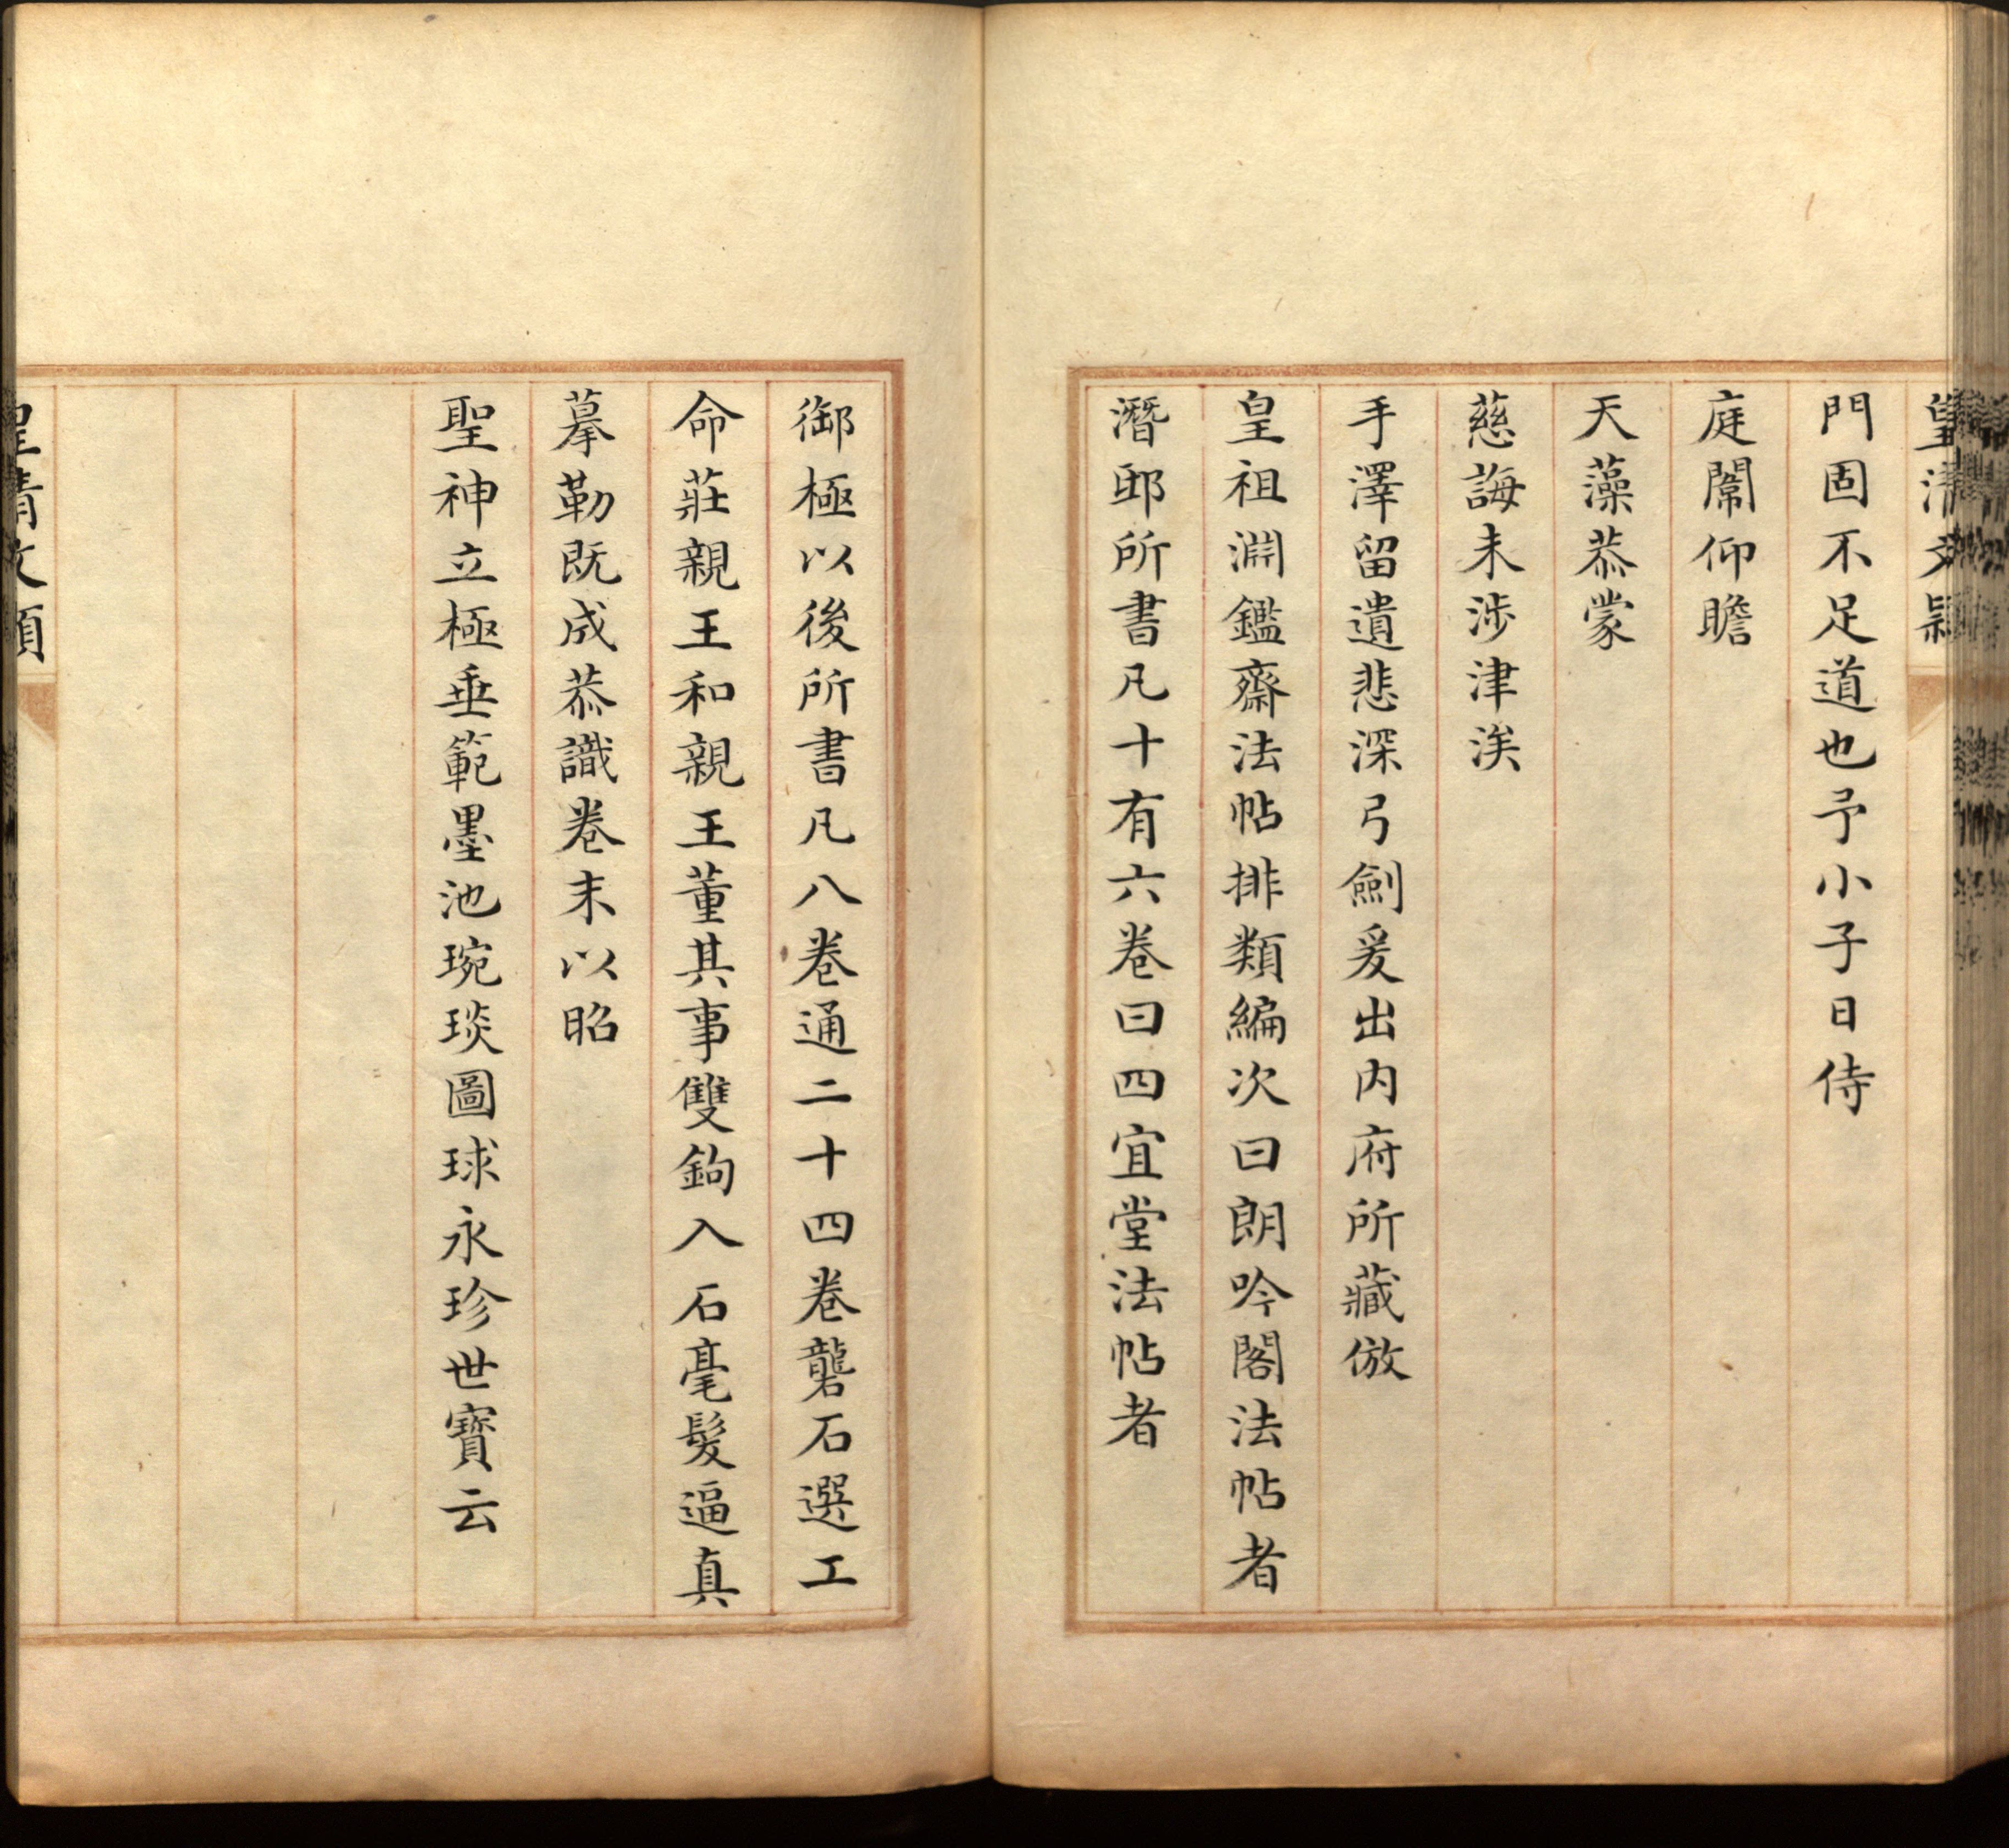 皇清文穎
門固不足道也予小子日侍
庭闈仰瞻
天藻恭蒙
慈誨未涉津涘
手澤留遺悲深弓劍爰出內府所藏倣
皇祖淵鑑齋法帖排類編次曰朗吟閣法帖者
潛邸所書凡十有六卷曰四宜堂法帖者
御極以後所書凡八卷通二十四卷礱石選工
命莊親王和親王董其事雙鉤入石毫髮逼真
摹勒既成恭識卷末以昭
聖神立極垂範墨池琬琰圖球永珍世寶云
皇清文穎